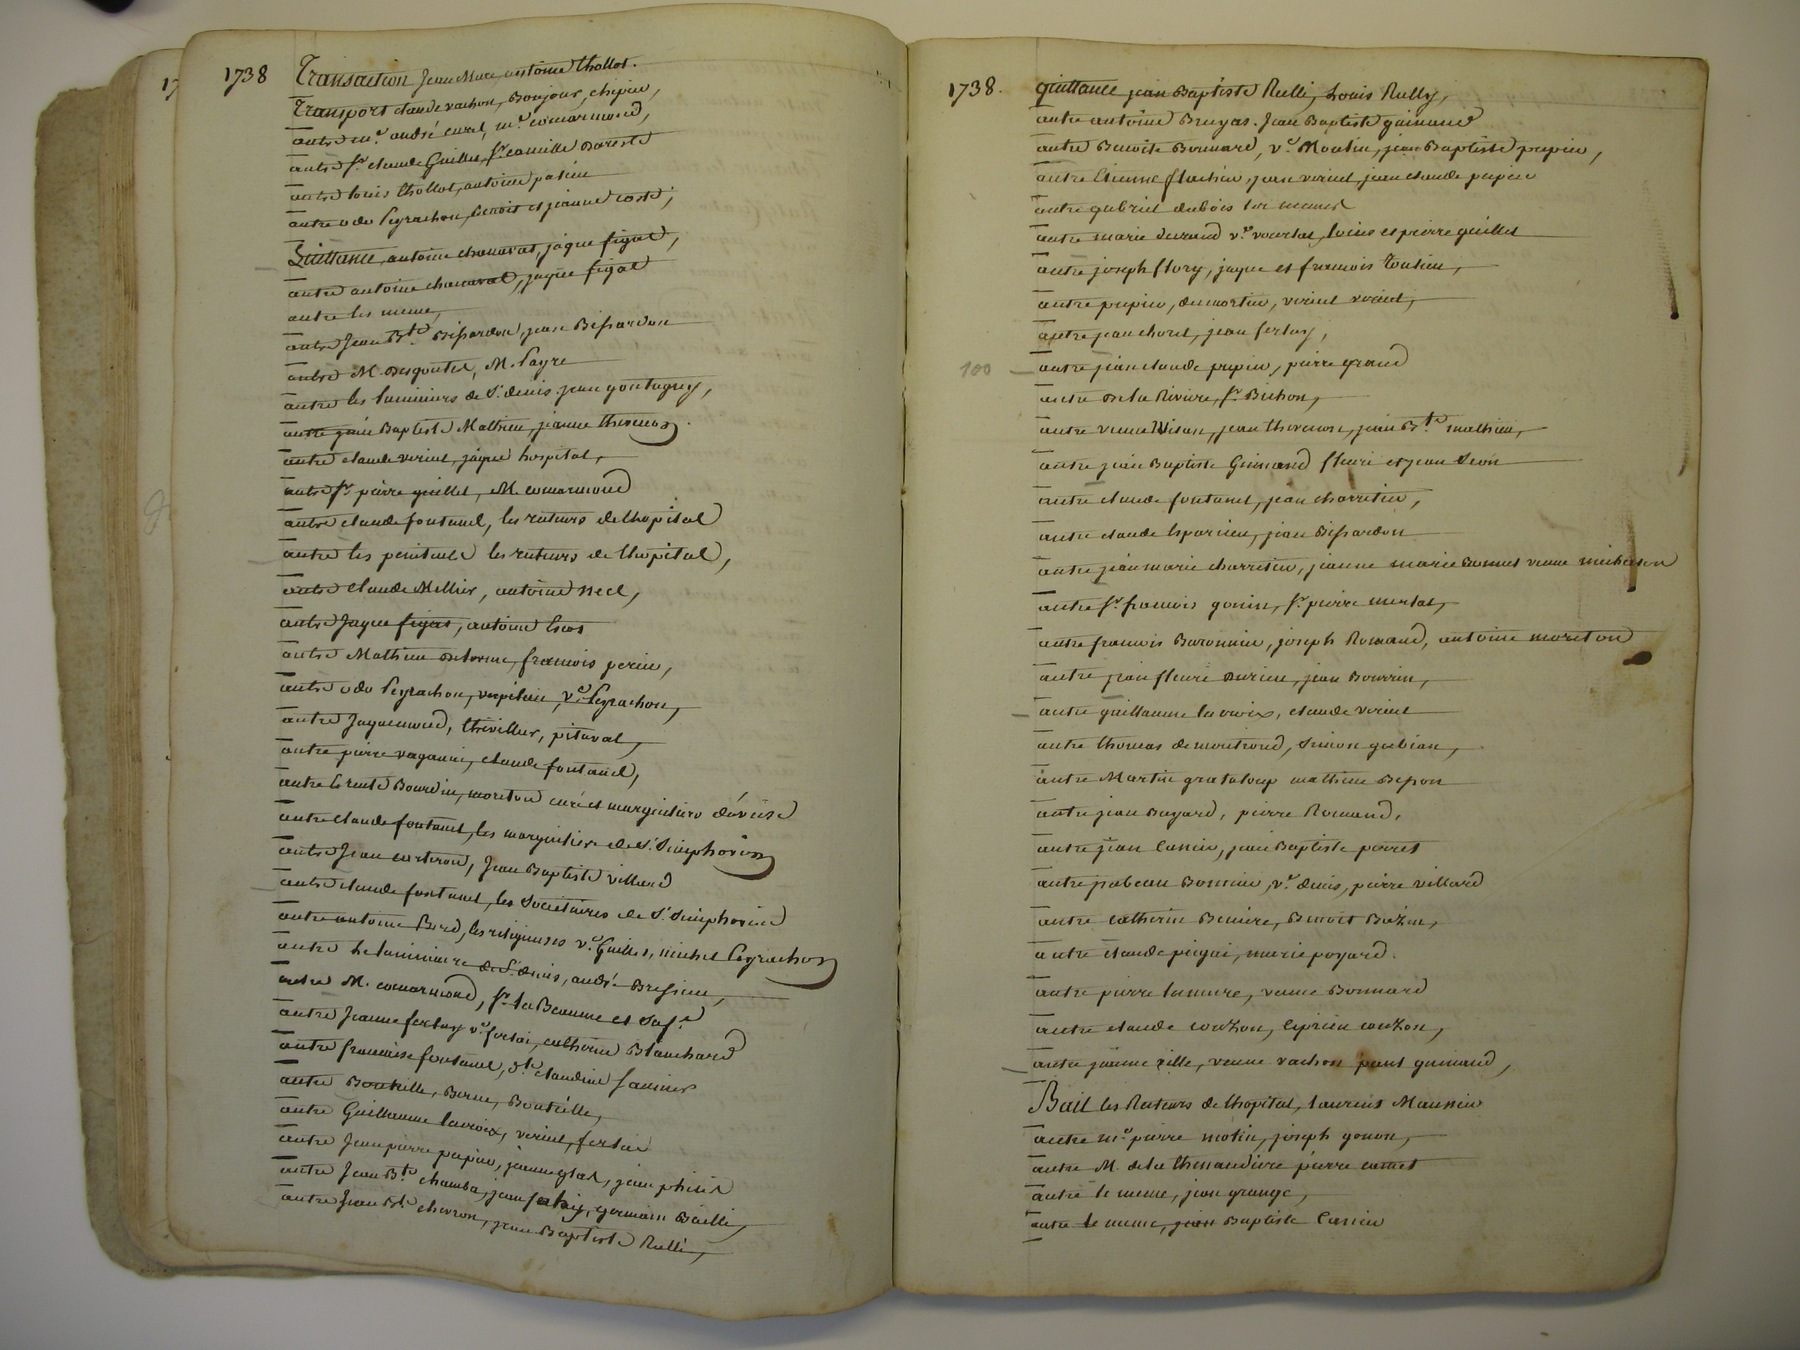 1738 Transaction Jean Marc, antoine thollot.
Transport claude vachon, Bonjour, chipier,
autre m.e andré curel, m.e comarmond,
autre Sr. claude Guillet, Sr. camille Dareste
autre louis thollot, antoine patin
autre odo Peyrachon, benoit et jeanne coste,
Quittance antoine chanavat, jaque figat,
autre antoine chanavat, jaque figat
autre les meme,
autre Jean Bte. Bissardon, jean Bissardon
autre M. Desgoutes, M. Payre
autre les luminiers de St. denis jean gontagrey,
autre jean Baptiste Mathieu, jeanne thevenon
autre claude veriut, jaque hospital,
autre Sr. pierre guillet, M. comarmond
autre claude fontanel, les recteurs de lhopital
autre les penitents les recteurs de lhopital,
autre claude Mellier, antoine neel,
autre Jaque figat, antoine
autre Mathieu delorme, francois perin,
autre odo Peyrachon, vespitier, ve. Peyrachon,
autre Jaquemond, thivillier, pitaval,
autre pierre vaganai, claude fontanel,
autre Bourdin, moreton curé et marguiliers
autre claude fontanel, les marguilier de St. Simphorien
autre Jean corteron, Jean Baptiste villard
autre claude fontanel, les Societaires de St. Simphorien
autre antoine Bord, les religieuses ve. Guillet, michel Peyrachon
autre Le luminaire de St. denis, andré Bressieu,
autre M. comarmond, Sr. la Beaume et Sa fe.
autre Jeanne ferlay ve. catherine Blanchard
autre francoise fontanel, Dlle claudine
autre Bouteille, Berne, Bouteille,
autre Guillaume lacroix, veriut,
autre Jean pierre pupier, jeanne grat, jean
autre Jean Bte. chamba, jean germain Bailli,
autre Jean Bte. chevron, jean Baptiste Rulli,
1738. quittance jean Baptiste Rulli, Louis Rully,
autre antoine Bruyas. Jean Baptiste guinand
autre Benoite Bonnard, ve. Moulin, jean Baptiste pupier,
autre Etienne flachier, jean veriut, jean claude pupier
autre gabriel dubois les memes
autre marie durand ve. vourlat, louis et pierre guillet
autre joseph flory, jaque et francois toulieu,
autre pupier, demortier, veriut veriut,
autre jean choret, jean ferlay,
100 autre jean claude pupier, pierre grand
autre De la Riviere, Sr. Bichon,
autre veuve jean thevenon, jean Bte. mathieu,
autre jean Baptiste Guinand fleuri et jean Seon
autre claude fontanel, jean charretier,
autre claude lesparieu, jean Bissardon
autre jean marie charretier, jeanne marie veuve
autre Sr. francois gonin, Sr. pierre merlat,
autre francois Baronnier, joseph Romand, antoine moreton
autre jean fleuri Durieu, jean Bourrin,
autre guillaume lacroix, claude veriut
autre thomas de montrond, Simon gubian,
autre Martin grataloup mathieu Besson
autre jean Bayard, pierre Romand,
autre jean Carrier, jean Baptiste perret
autre isabeau Bonnier, ve. denis, pierre villard
autre catherin Beniere, Benoit Bazin,
autre claude pugai, marie poyard.
autre pierre lamure, veuve Bonnard
autre claude couzon, Ciprien couzon,
autre jeanne veuve vachon guinand,
Bail les Recteurs de lhopital, laurens Maunier
autre me. pierre molin, joseph gonon,
autre M. de la thenaudiere pierre
autre le meme, jean grange,
autre le meme, jean Baptiste Carrier